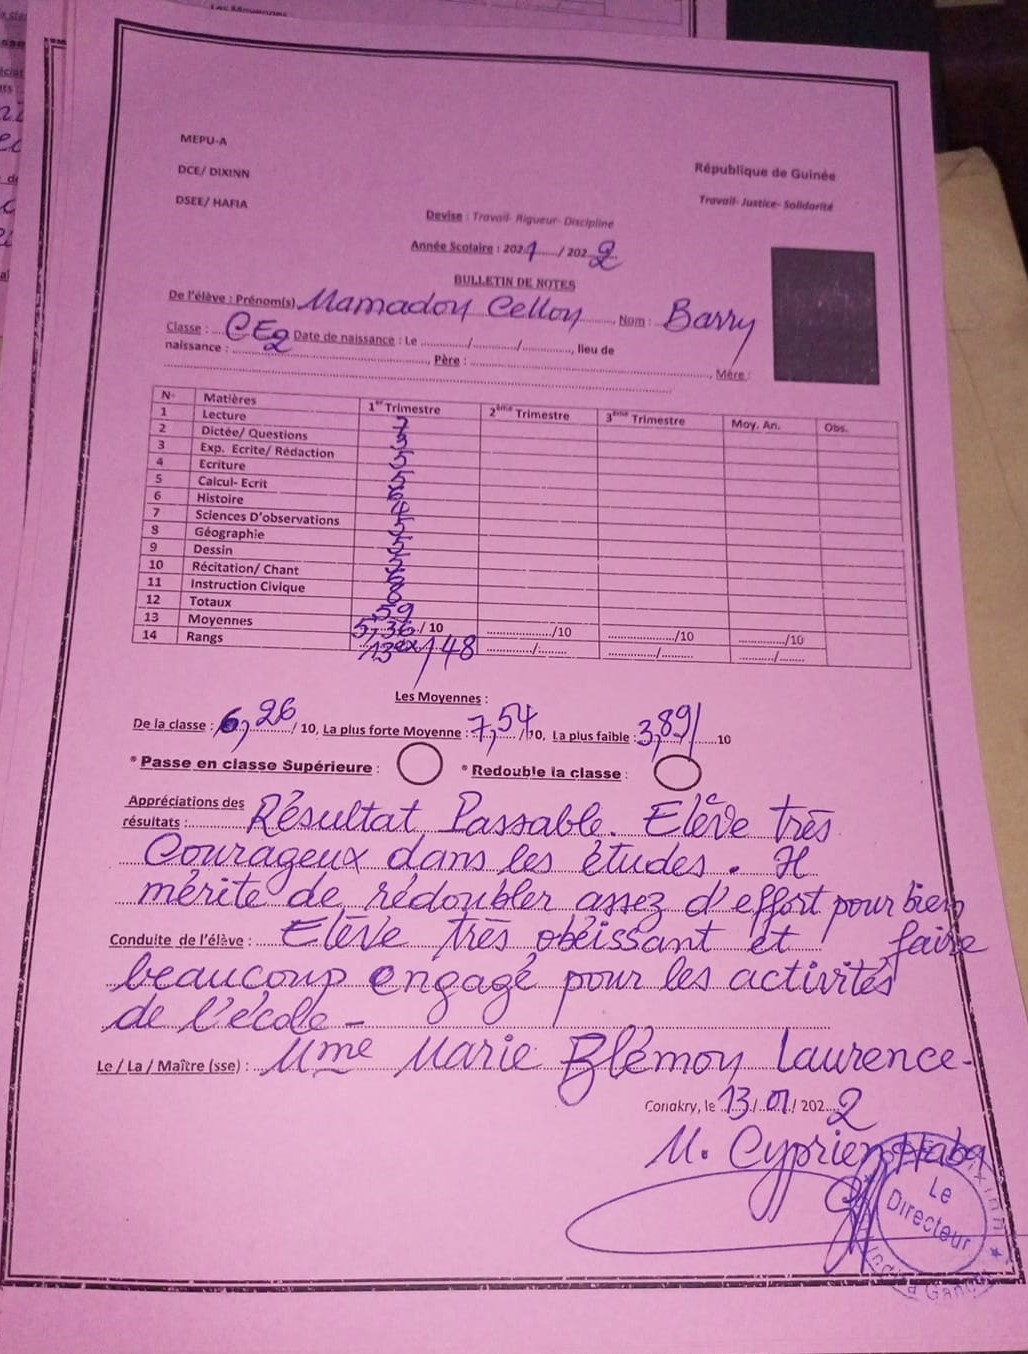 MEPU-A
République de Guinée
DCE/ DIXINN
Travail- Justice- Solidarité
DSEE/ HAFIA
Devise : Travail- Rigueur- Discipline
Année Scolaire : 2021/ 2022
BULLETIN DE NOTES
De l'élève : Prénom(s) Mamadou Cellou Nom : Barry
Classe : CE2 Date de naissance : Le ........../........../.........., lieu de
naissance : .........., Père : .........., Mère :
N° Matières 1er Trimestre 2ème Trimestre 3ème Trimestre Moy. An. Obs.
1 Lecture 7
2 Dictée/ Questions 3
3 Exp. Ecrite/ Rédaction 5
4 Ecriture 5
5 Calcul- Ecrit
6 Histoire
7 Sciences D'observations
8 Géographie
9 Dessin
10 Récitation/ Chant
11 Instruction Civique
12 Totaux 59
13 Moyennes 5,36 / 10 ........../10 ........../10 ........../10
14 Rangs 13ex/48 ........../.......... ........../.......... ........../..........
Les Moyennes :
De la classe : 6,26 / 10, La plus forte Moyenne : 7,54 /10, La plus faible : 3,89/ 10
* Passe en classe Supérieure : * Redouble la classe :
Appréciations des
résultats : Résultat Passable. Elève très
Courageux dans les études. Il
mérite de rédoubler assez d'effort pour bien
faire
Conduite de l'élève : Elève très obéissant et
beaucoup engagé pour les activités
de l'école -
Le / La / Maître (sse) : Mme Marie Blémou Laurence-
Conakry, le 13/ 01/ 2022
M. Cyprien Haba
Le
Directeur